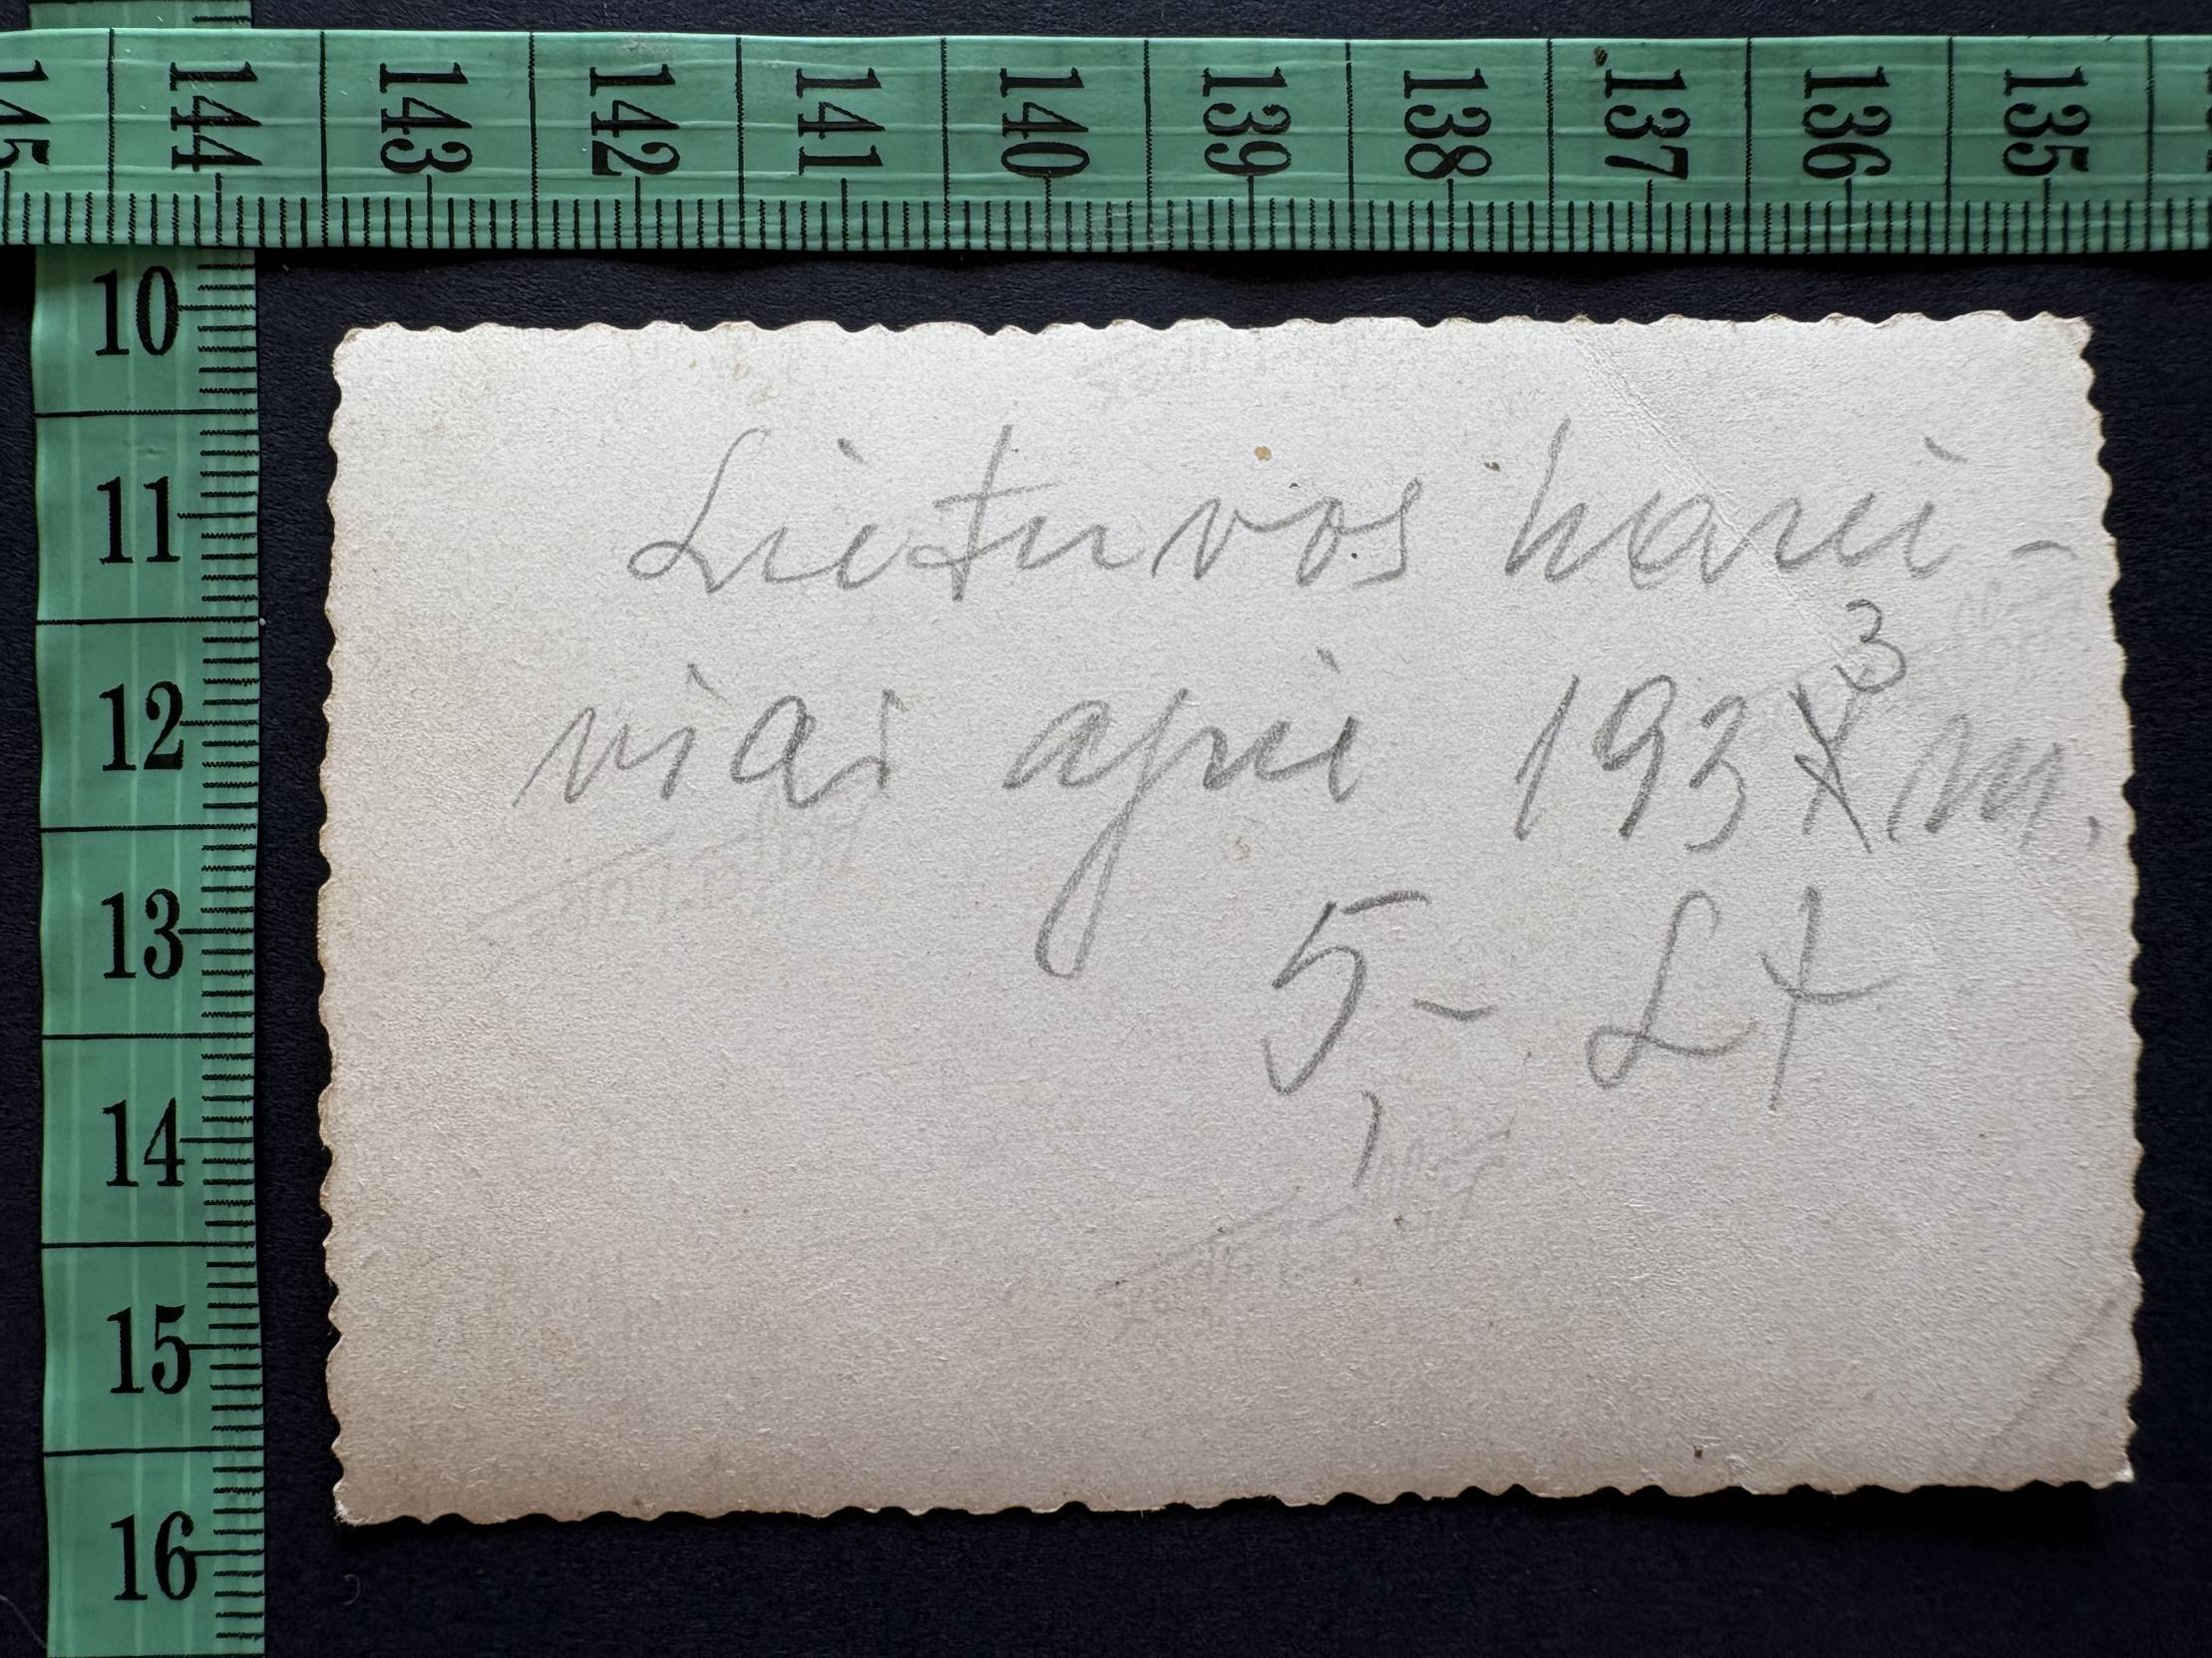 145 144 143 142 141 140 139 138 137 136 135
10
11
12
13
14
15
16
Lietuvos kari-
viai apie 193X³ m.
5- Lt